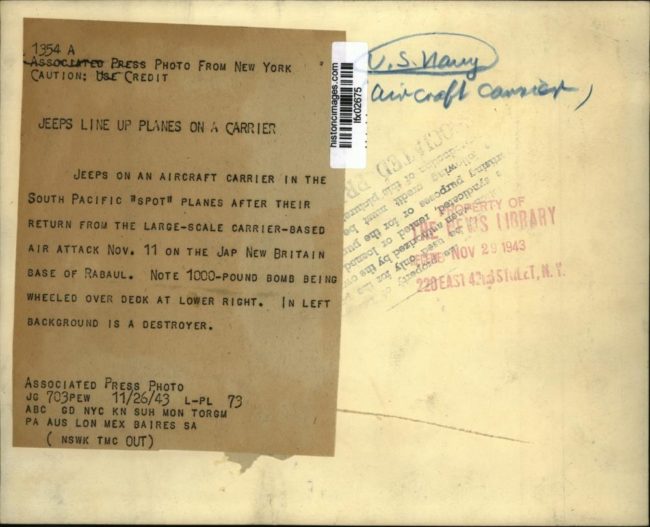 1354 A
ASSOCIATED PRESS PHOTO FROM NEW YORK
CAUTION: USE CREDIT
JEEPS LINE UP PLANES ON A CARRIER
JEEPS ON AN AIRCRAFT CARRIER IN THE
SOUTH PACIFIC "SPOT" PLANES AFTER THEIR
RETURN FROM THE LARGE-SCALE CARRIER-BASED
AIR ATTACK NOV. 11 ON THE JAP NEW BRITAIN
BASE OF RABAUL. NOTE 1000-POUND BOMB BEING
WHEELED OVER DECK AT LOWER RIGHT. IN LEFT
BACKGROUND IS A DESTROYER.
ASSOCIATED PRESS PHOTO
JG 703PEW 11/26/43 L-PL 73
ABC GD NYC KN SUH MON TORGM
PA AUS LON MEX BAIRES SA
( NSWK TMC OUT)
historicimages.com
lfx02675
U.S. Navy
aircraft carrier)
PROPERTY OF
THE NEWS LIBRARY
NOV 29 1943
220 EAST 42 STREET, N.Y.